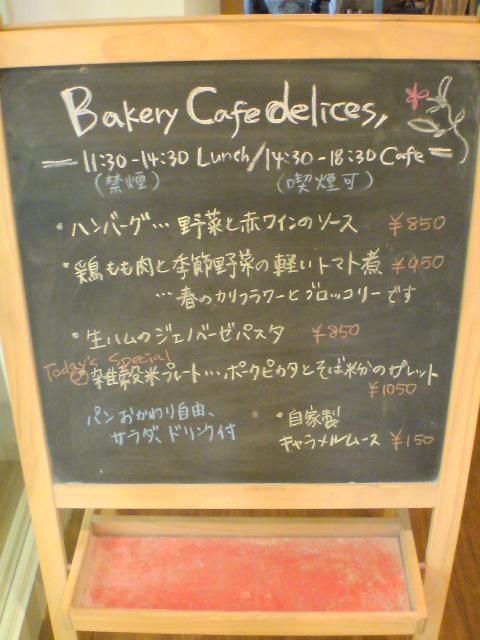 Bakery Cafe delices,
11:30-14:30 Lunch/14:30-18:30 Cafe
(禁煙) (喫煙可)
・ハンバーグ…野菜と赤ワインのソース ¥850
・鶏もも肉と季節野菜の軽いトマト煮 ¥950
…春のカリフラワーとブロッコリーです
・生ハムのジェノバーゼパスタ ¥850
Today's Special
雑穀米プレート…ポークピカタとそば粉のガレット
¥1050
パンおかわり自由、
サラダ、ドリンク付
・自家製
キャラメルムース ¥150